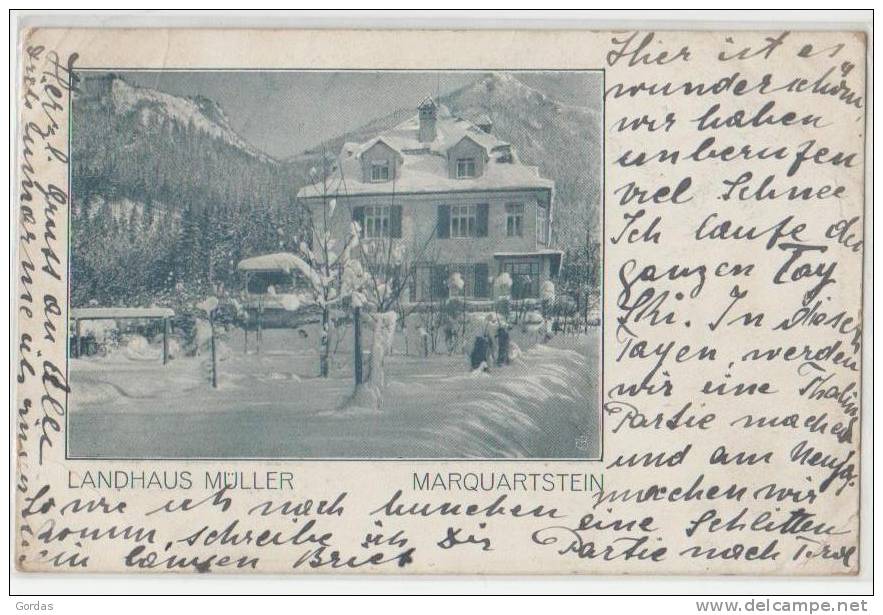 Hier ist es
wunderschön,
wir haben
unberufen
viel Schnee
Ich laufe den
ganzen Tag
Ski. In diesen
Tagen, werden
wir eine
Partie machen
und am Neuj.
machen wir
eine Schlitten
Partie nach Tirol
LANDHAUS MÜLLER MARQUARTSTEIN
So wie ich nach hunchen
komm, schreibe ich Dir
ein langen Brief
Herzl. Gruss an Alle
Gordas
www.delcampe.net